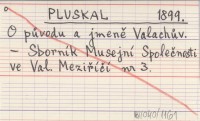 PLUSKAL 1899.
O původu a jmeně Valachův.
– Sborník Musejní Společnosti
ve Val. Meziříčí nr 3.